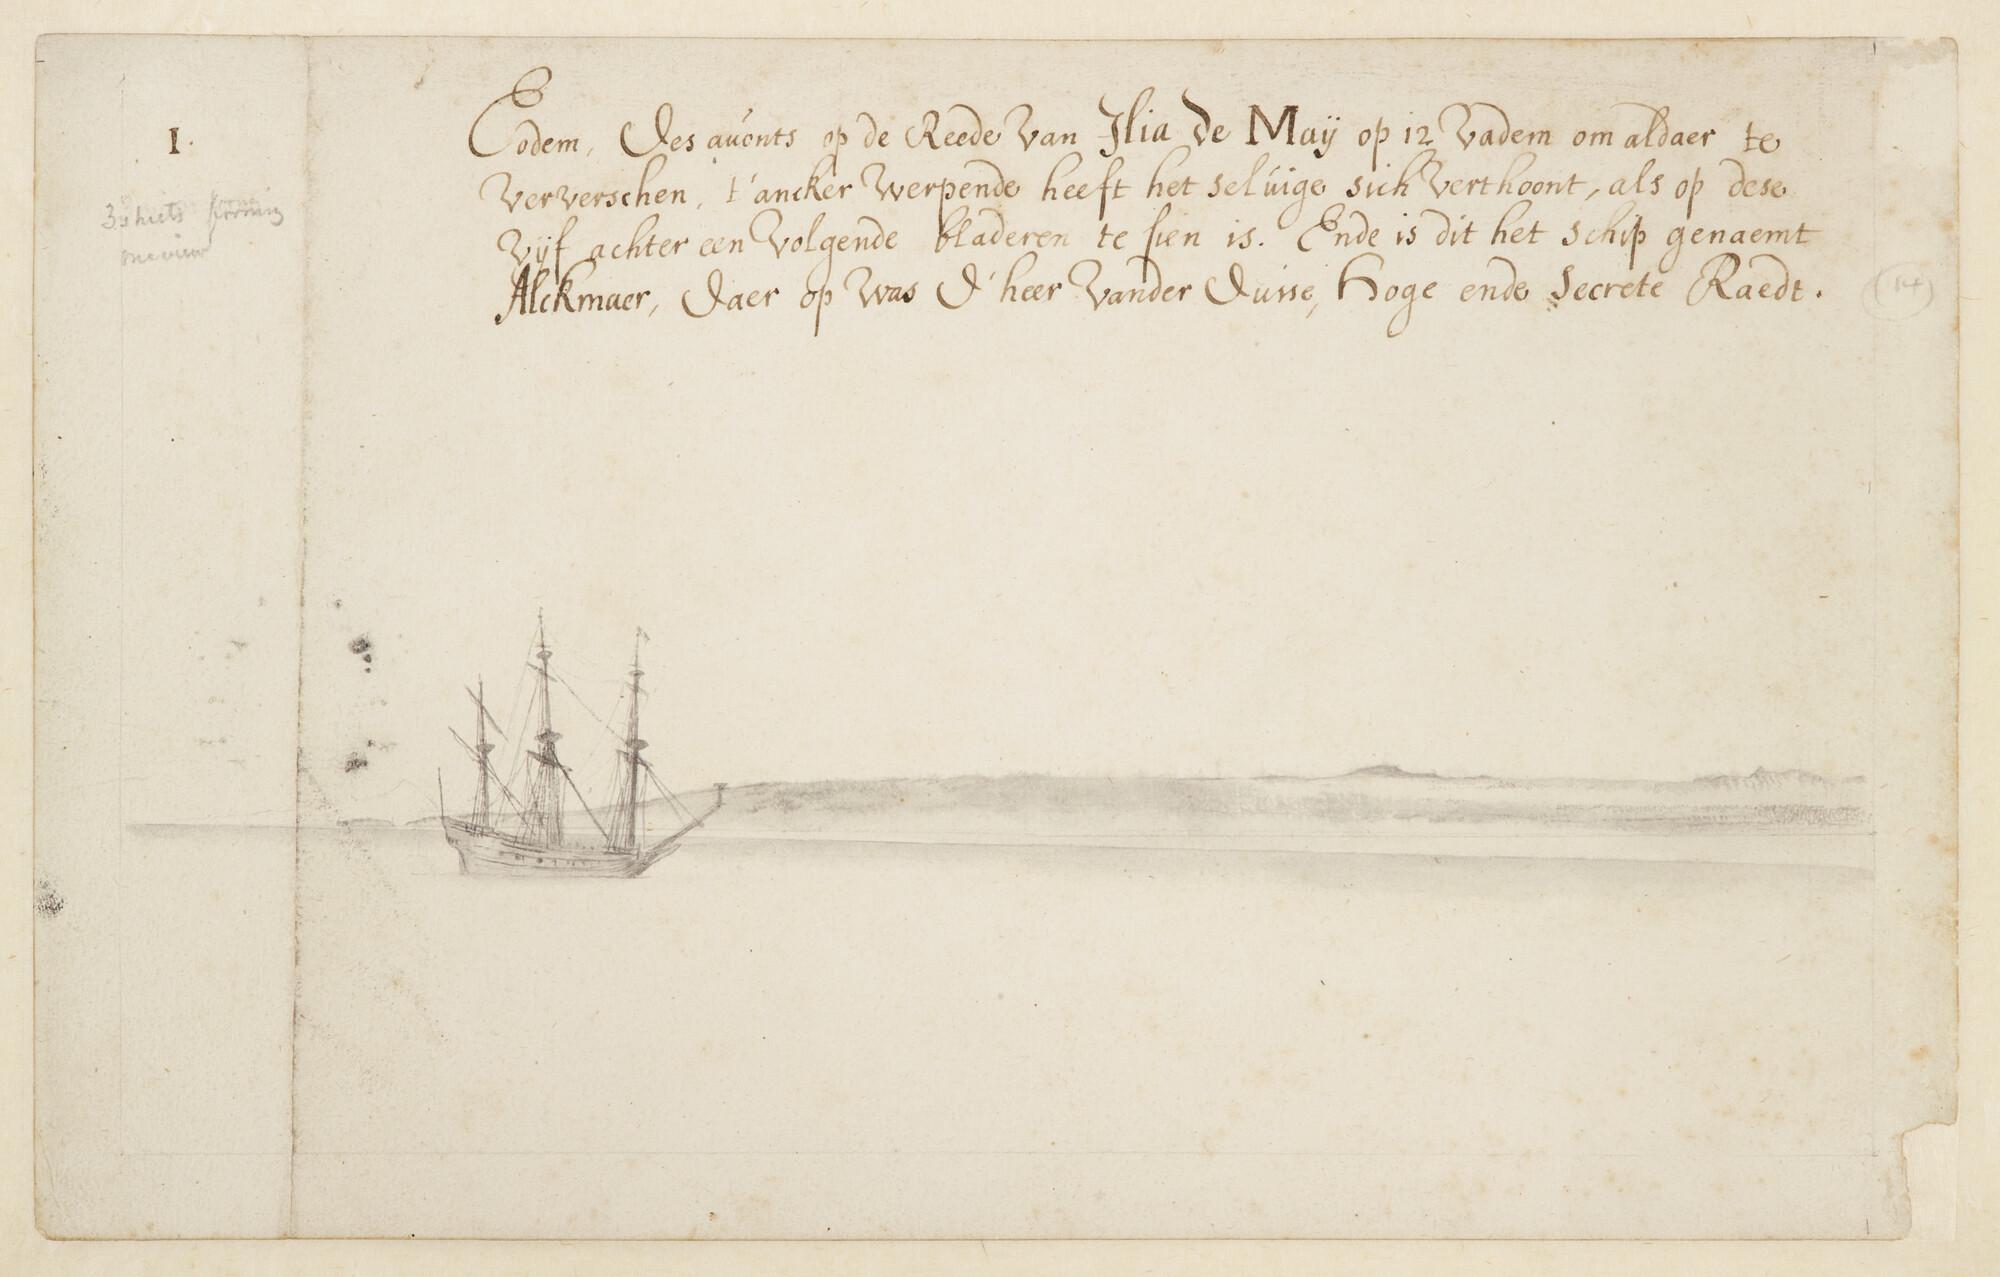 I.
Eodem, des auonts op de Reede van Ilia de Maÿ op 12 vadem om aldaer te
ververschen, t'ancker werpende heeft het seluige sich verthoont, als op dese
vÿf achter een volgende bladeren te sien is. Ende is dit het schip genaemt
Alckmaer, daer op was d'heer vander Dusse, Hoge ende Secrete Raedt.
(14)